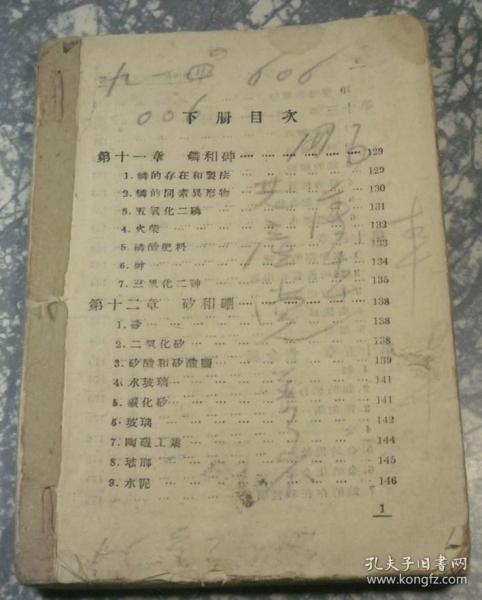 九一四 606
006
下册目次
第十一章 磷和砷 129
1. 磷的存在和製法 129
2. 磷的同素異形物 130
3. 五氧化二磷 131
4. 火柴 132
5. 磷酸肥料 133
6. 砷 134
7. 三氧化二砷 135
第十二章 矽和硼 138
1. 矽 138
2. 二氧化矽 138
3. 矽酸和矽酸鹽 139
4. 水玻璃 141
5. 碳化矽 141
6. 玻璃 142
7. 陶磁工業 144
8. 琺瑯 145
9. 水泥 146
1
孔夫子旧书网
www.kongfz.com